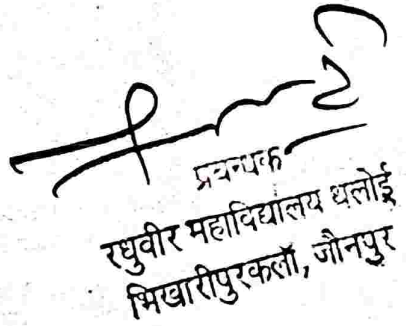 प्रबन्धक
रघुवीर महाविद्यालय थलोई
भिखारीपुरकलॉ, जौनपुर